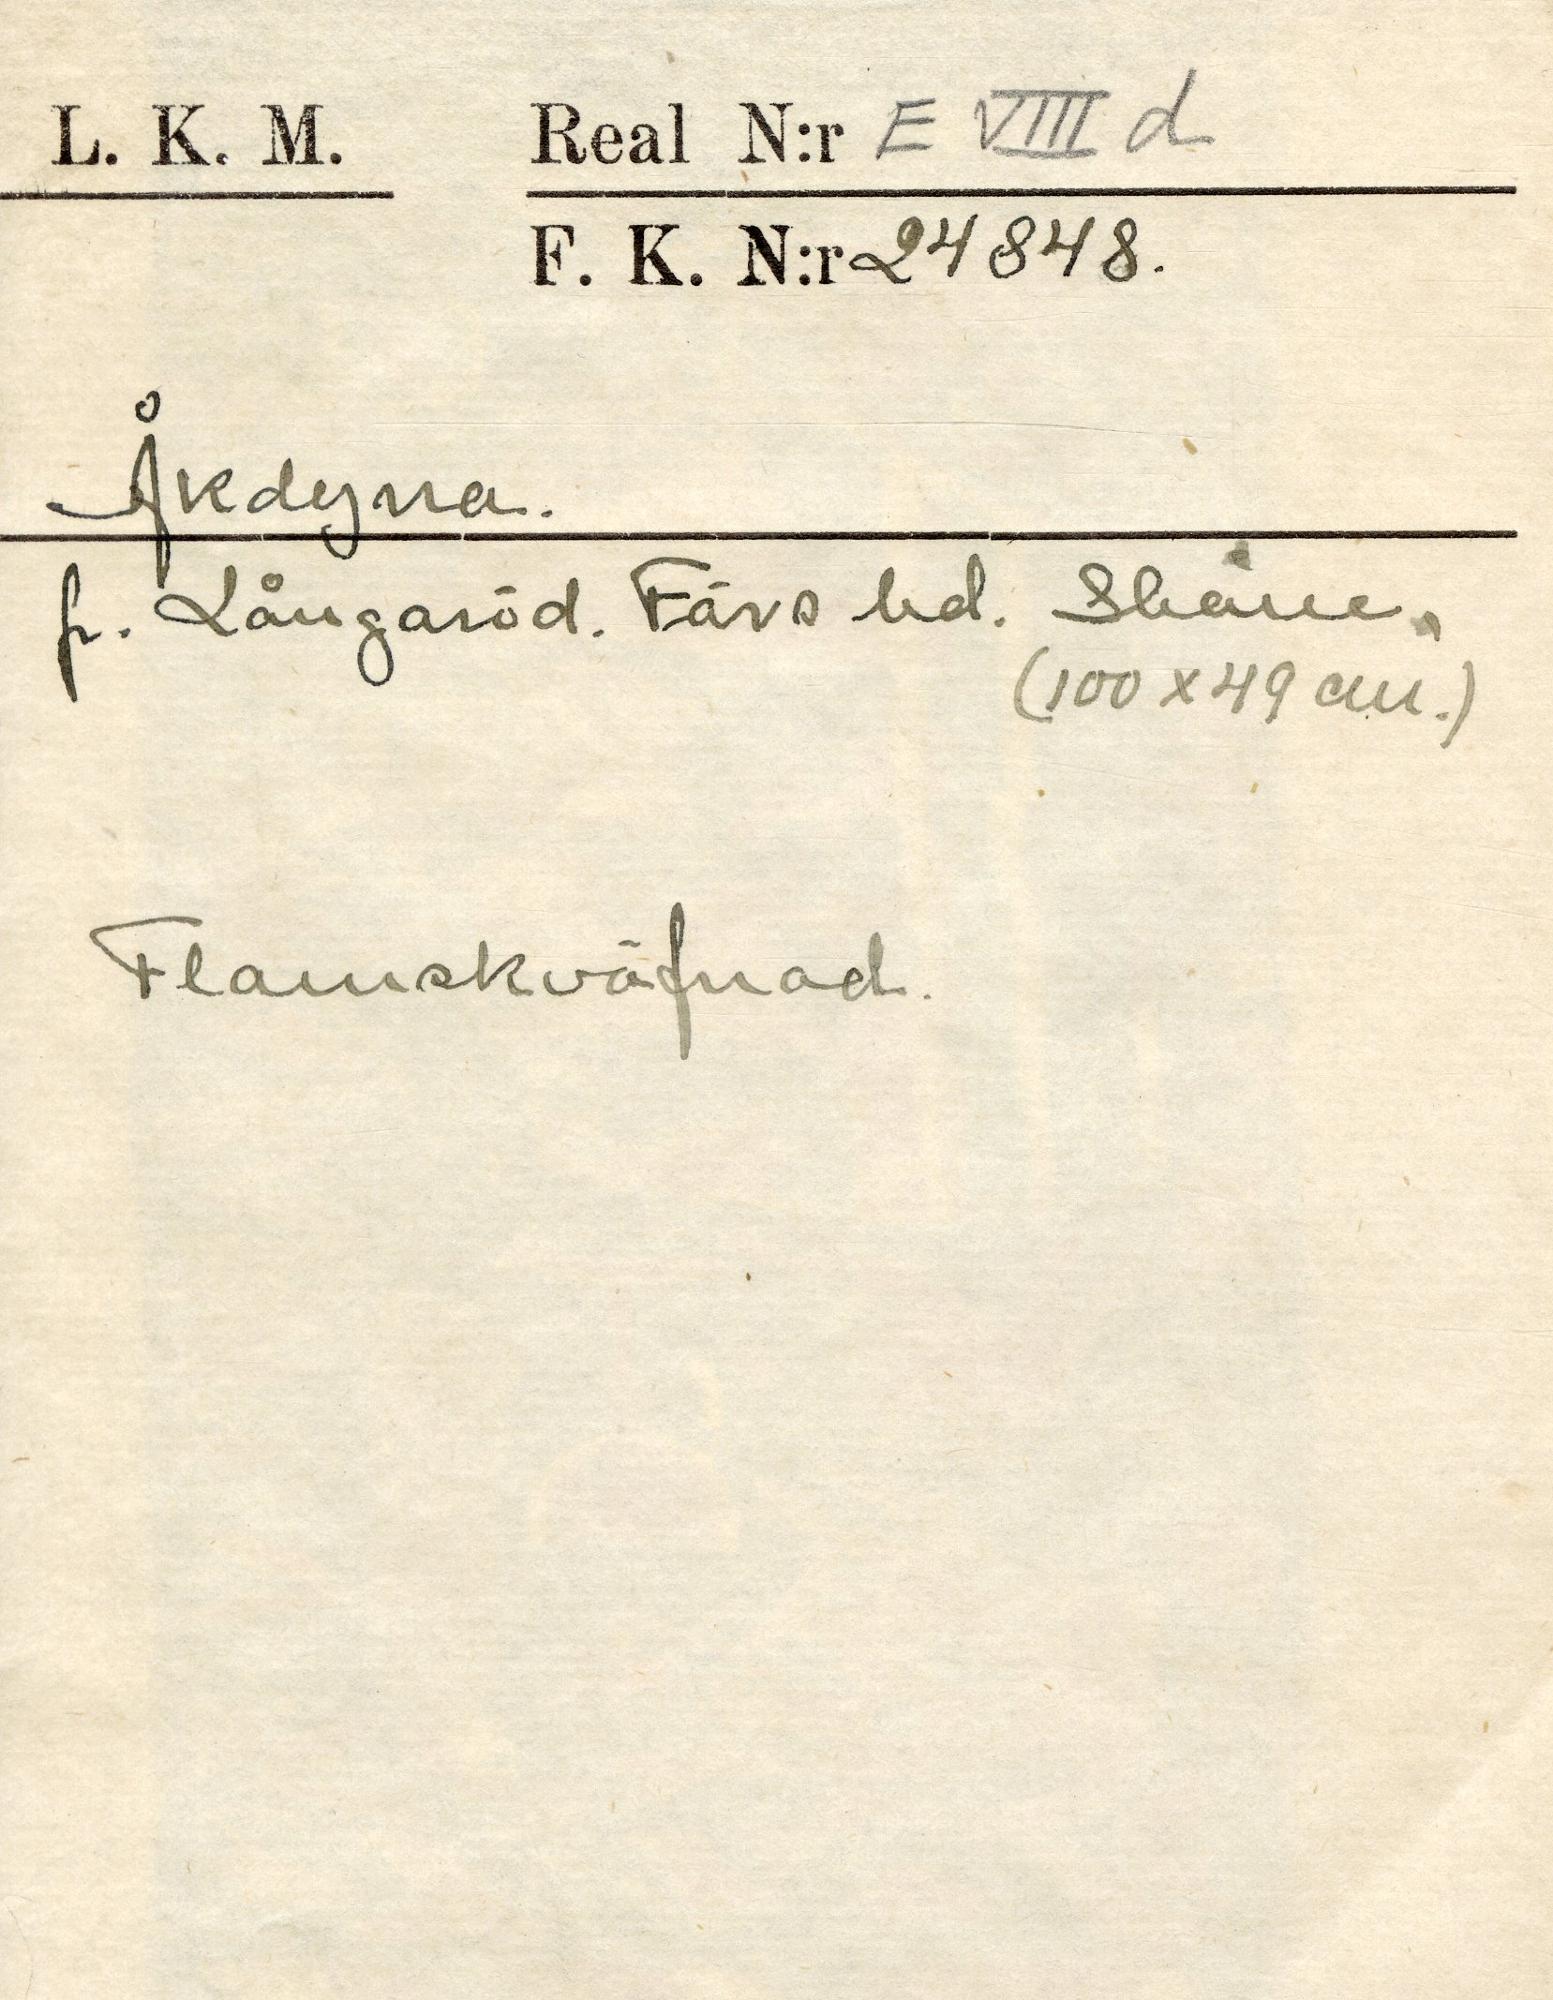 L. K. M. Real N:r E VIII d
F. K. N:r 24848.
Åkdyna.
fr. Långaröd. Färs hd. Skåne.
(100 x 49 cm.)
Flamskväfnad.